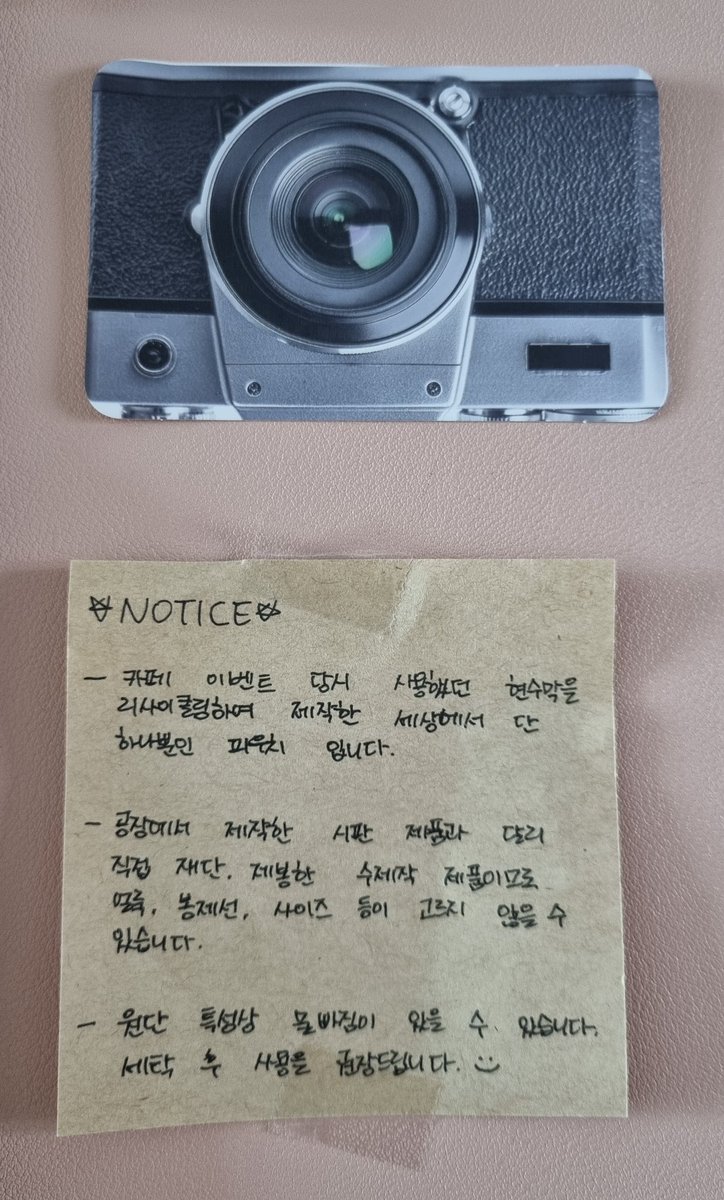 NOTICE
- 카페 이벤트 당시 사용했던 현수막을
리사이클링하여 제작한 세상에서 단
하나뿐인 파우치 입니다.
- 공장에서 제작한 시판 제품과 달리
직접 재단, 제봉한 수제작 제품이므로
얼룩, 봉제선, 사이즈 등이 고르지 않을 수
있습니다.
- 원단 특성상 물빠짐이 있을 수 있습니다.
세탁 후 사용을 권장드립니다.